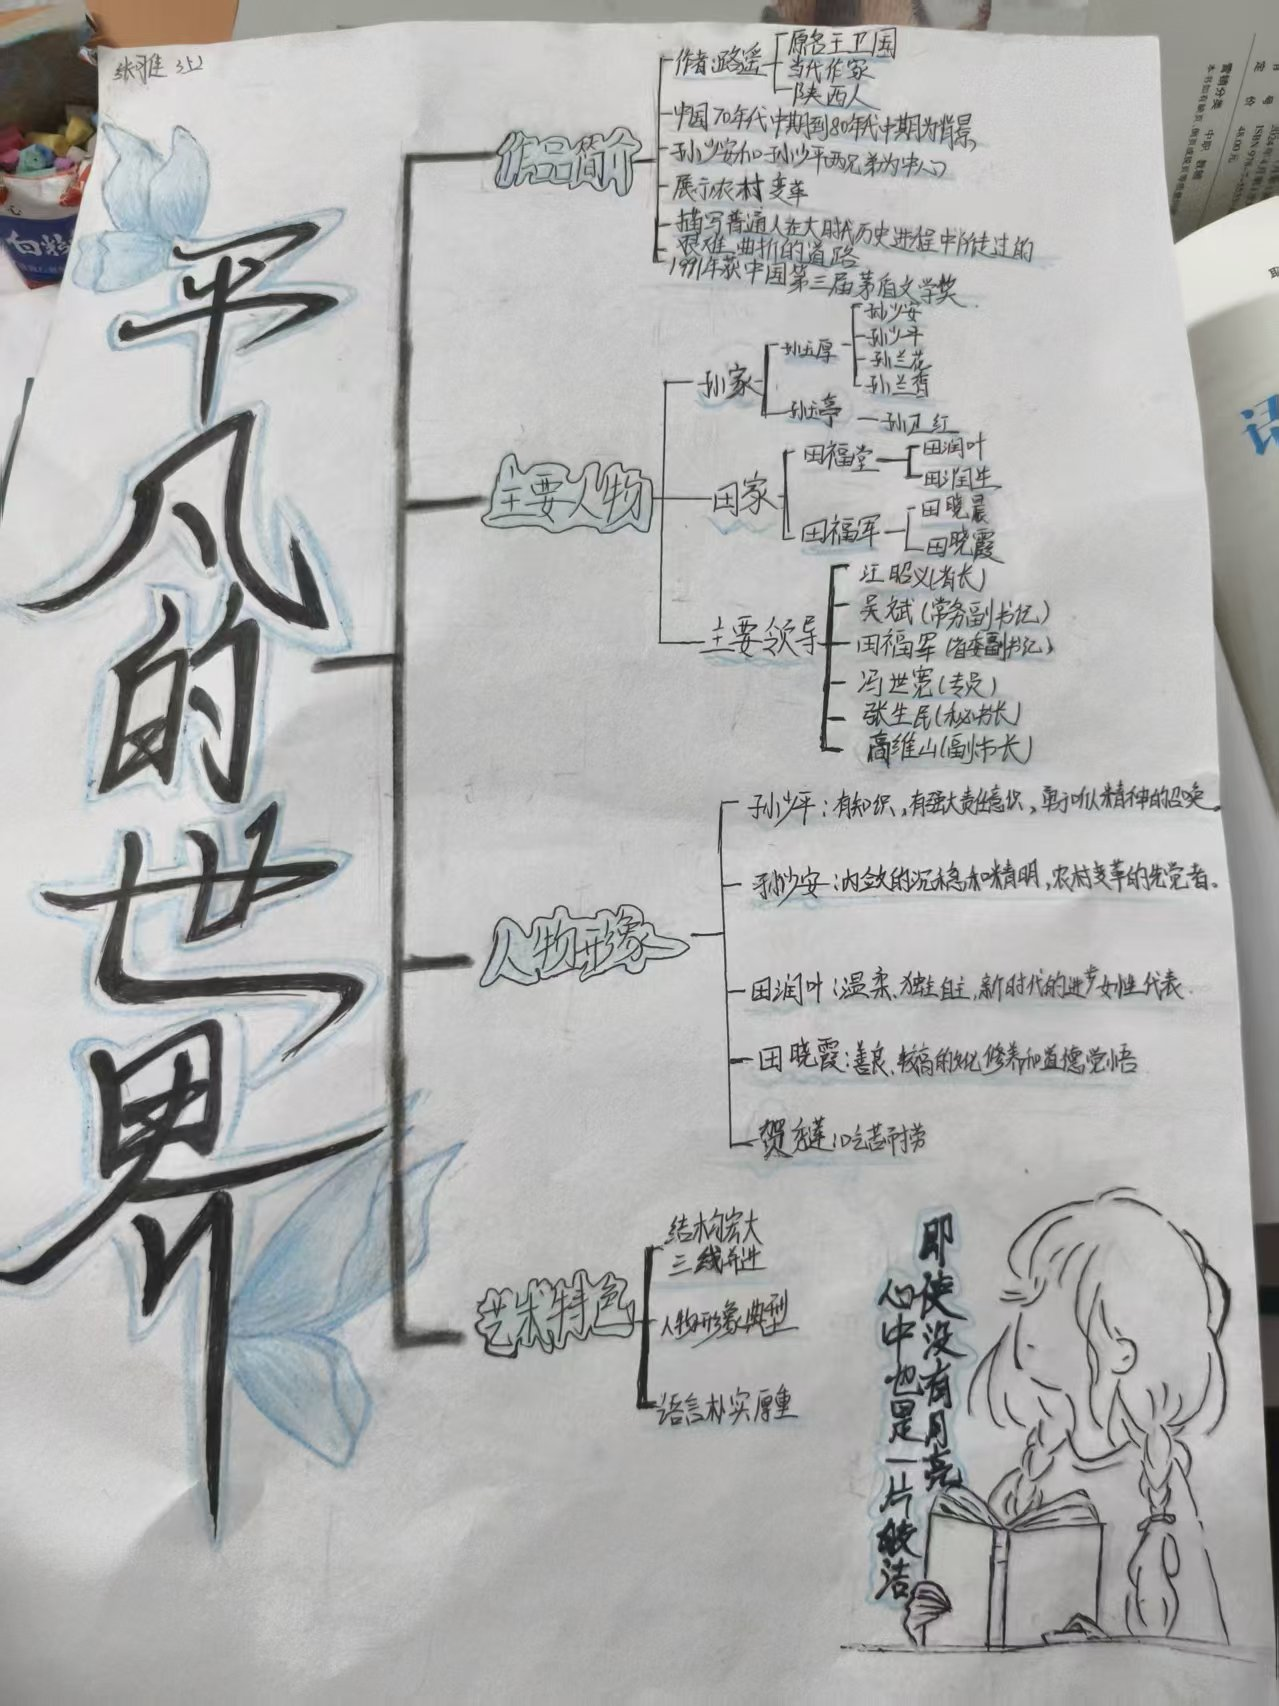 张雅 352
平凡的世界
作品简介
作者:路遥
原名王卫国
当代作家
陕西人
中国70年代中期到80年代中期为背景
孙少安和孙少平两兄弟为中心
展示农村变革
描写普通人在大时代历史进程中所走过的
艰难曲折的道路
1991年获中国第三届茅盾文学奖
主要人物
孙家
孙玉厚
孙少安
孙少平
孙兰花
孙兰香
孙玉亭
孙卫红
田家
田福堂
田润叶
田润生
田福军
田晓晨
田晓霞
主要领导
汪昭义(省长)
吴斌(常务副书记)
田福军(省委副书记)
冯世宽(专员)
张生民(秘书长)
高维山(副书长)
人物形象
孙少平:有知识,有强大责任意识,勇于听从精神的召唤
孙少安:内敛的沉稳和精明,农村变革的先觉者。
田润叶:温柔、独立自主,新时代的进步女性代表.
田晓霞:善良、较高的文化修养和道德觉悟
贺秀莲:吃苦耐劳
艺术特色
结构宏大
三线并进
人物形象典型
语言朴实厚重
即使没有月亮
心中也是一片皎洁
白粉
营销分类
中职 教辅
定 价
48.00元